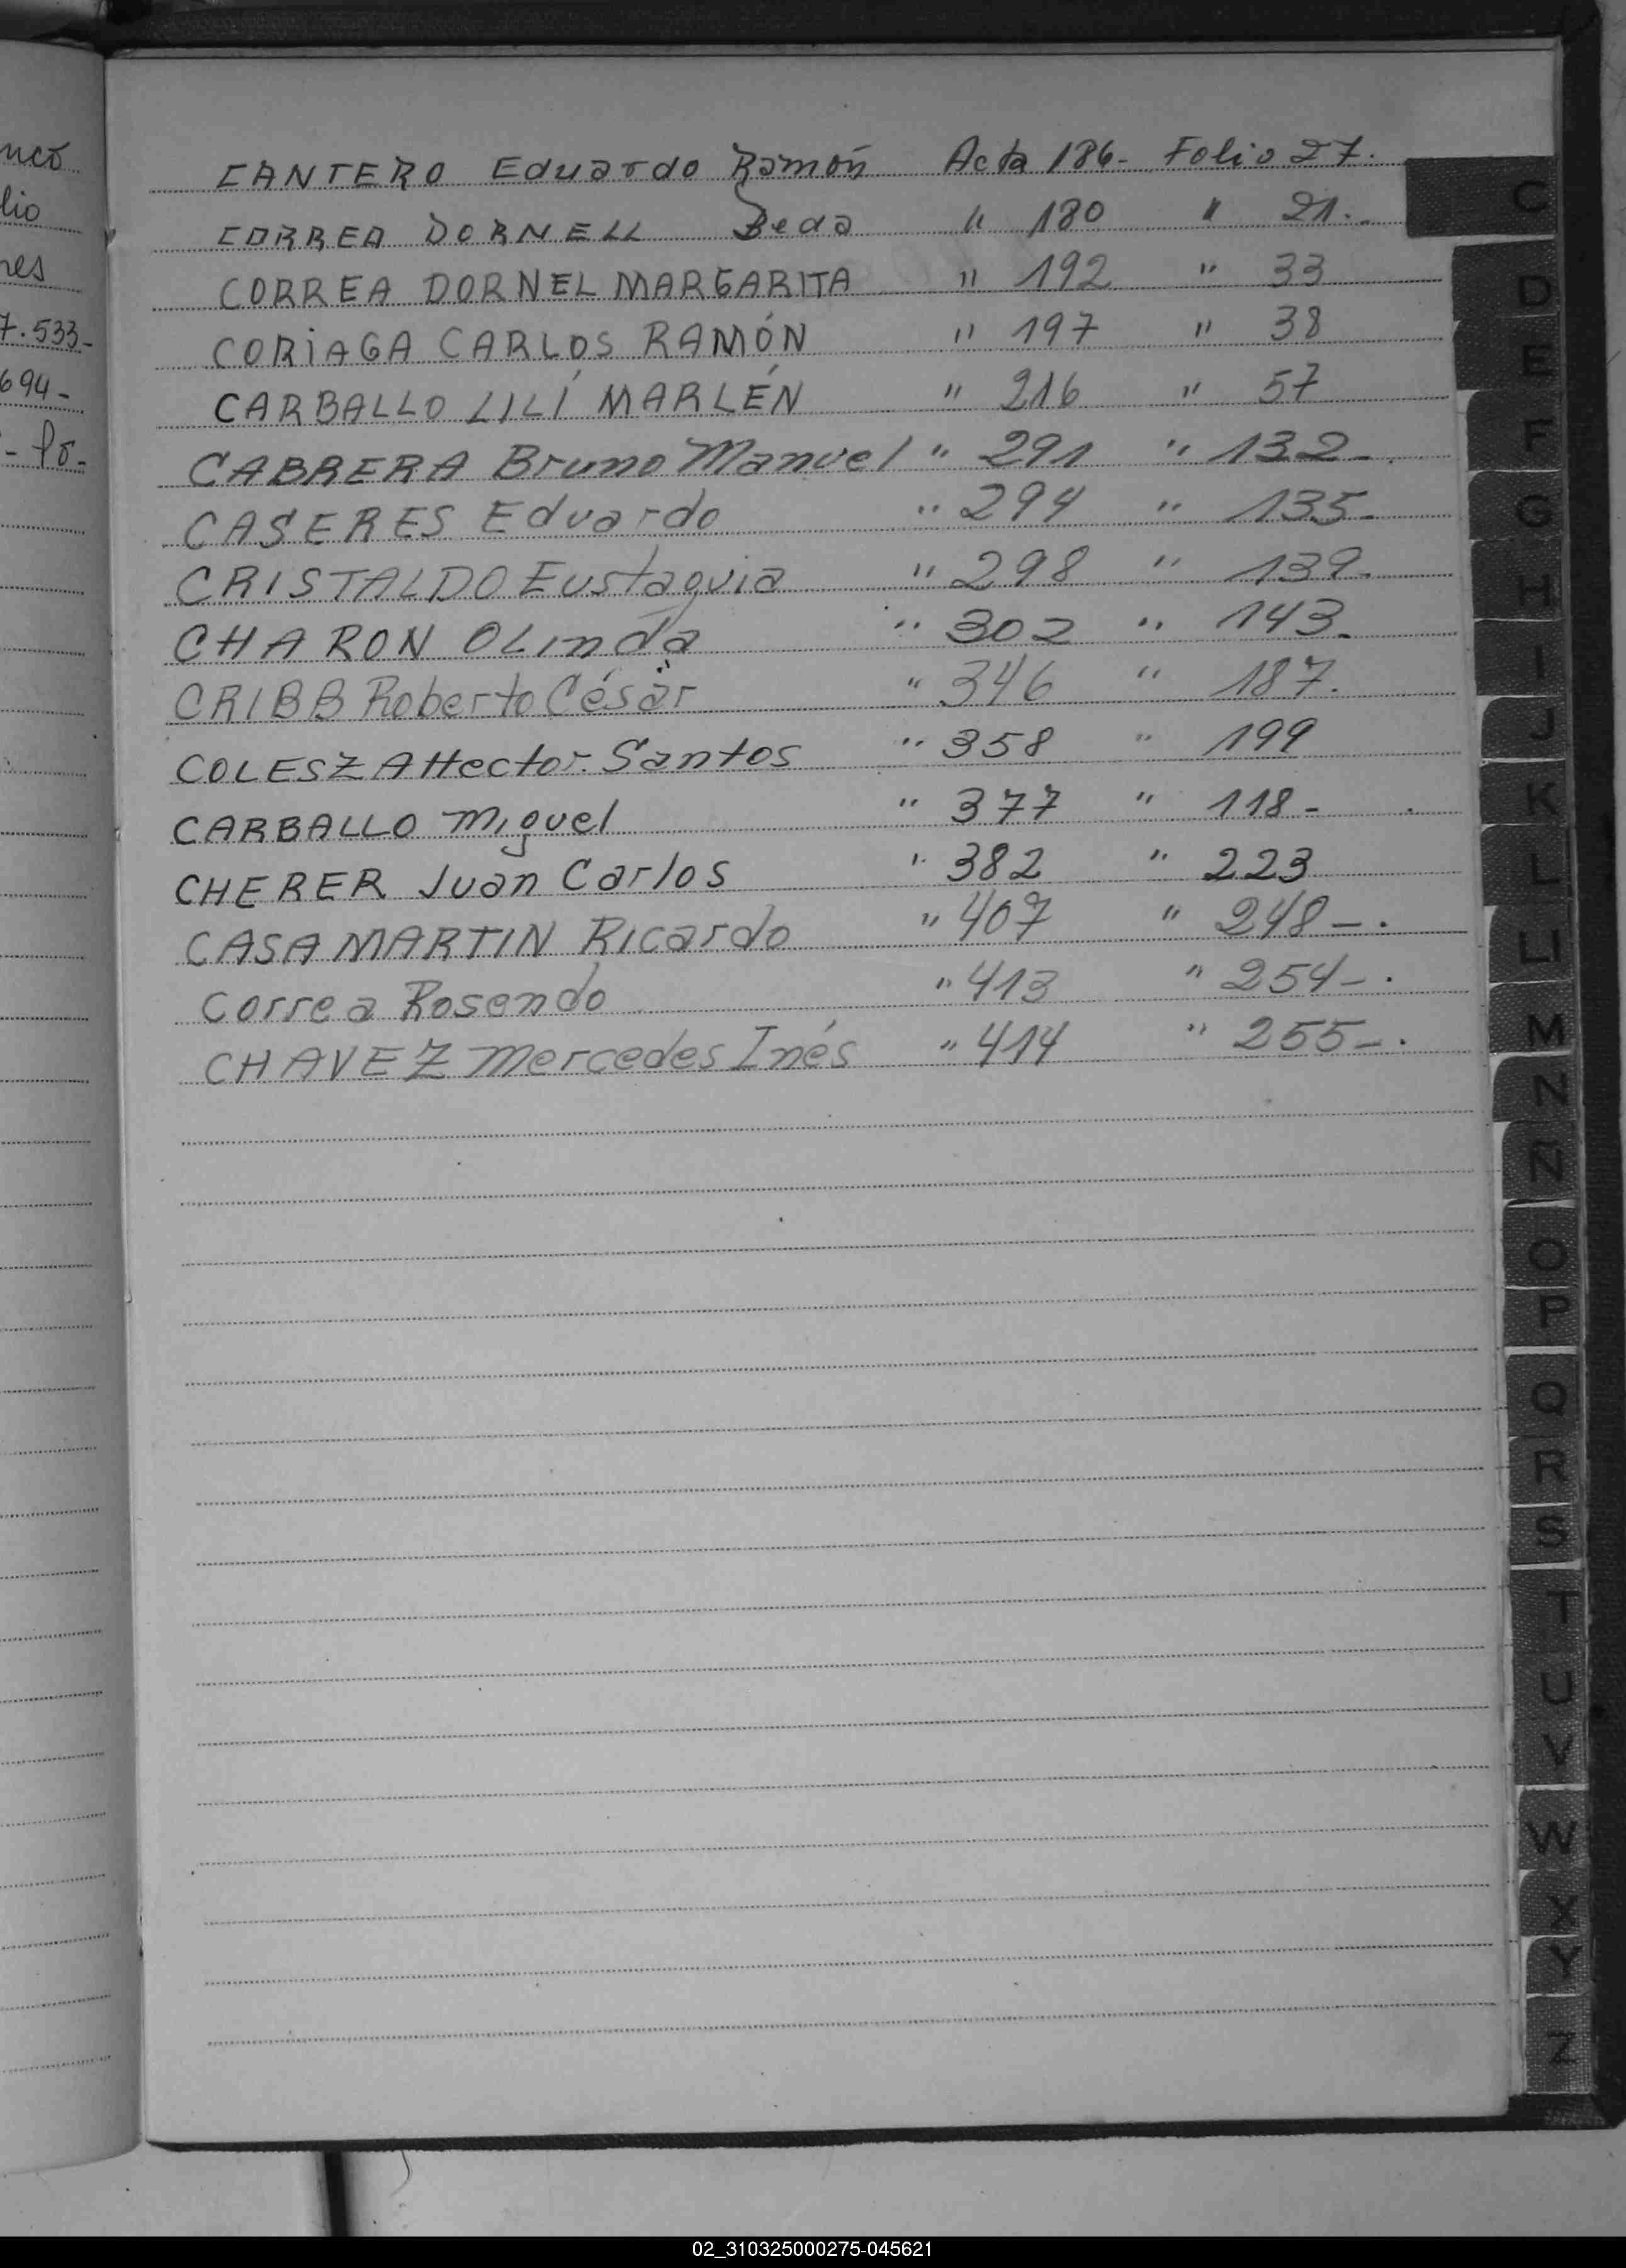 nco
lio
res
7.533-
694-
CANTERO Eduardo Ramón Acta 186- Folio 27.
CORREA DORNELL Beda " 180 " 21.
CORREA DORNEL MARGARITA " 192 " 33
CORIAGA CARLOS RAMÓN " 197 " 38
CARBALLO LILÍ MARLÉN " 216 " 57
CABRERA Bruno Manuel " 291 " 132-
CASERES Eduardo " 294 " 135-
CRISTALDO Eustaquia " 298 " 139-
CHARON OLinda " 302 " 143-
CRIBB Roberto César " 346 " 187.
COLESZA Hector Santos " 358 " 199
CARBALLO Miguel " 377 " 118-
CHERER Juan Carlos " 382 " 223
CASAMARTIN Ricardo " 407 " 248-.
Correa Rosendo " 413 " 254-.
CHAVEZ Mercedes Inés " 414 " 255-.
C
D
E
F
G
H
I
J
K
L
LL
M
N
Ñ
O
P
Q
R
S
T
U
V
W
X
Y
Z
02_310325000275-045621